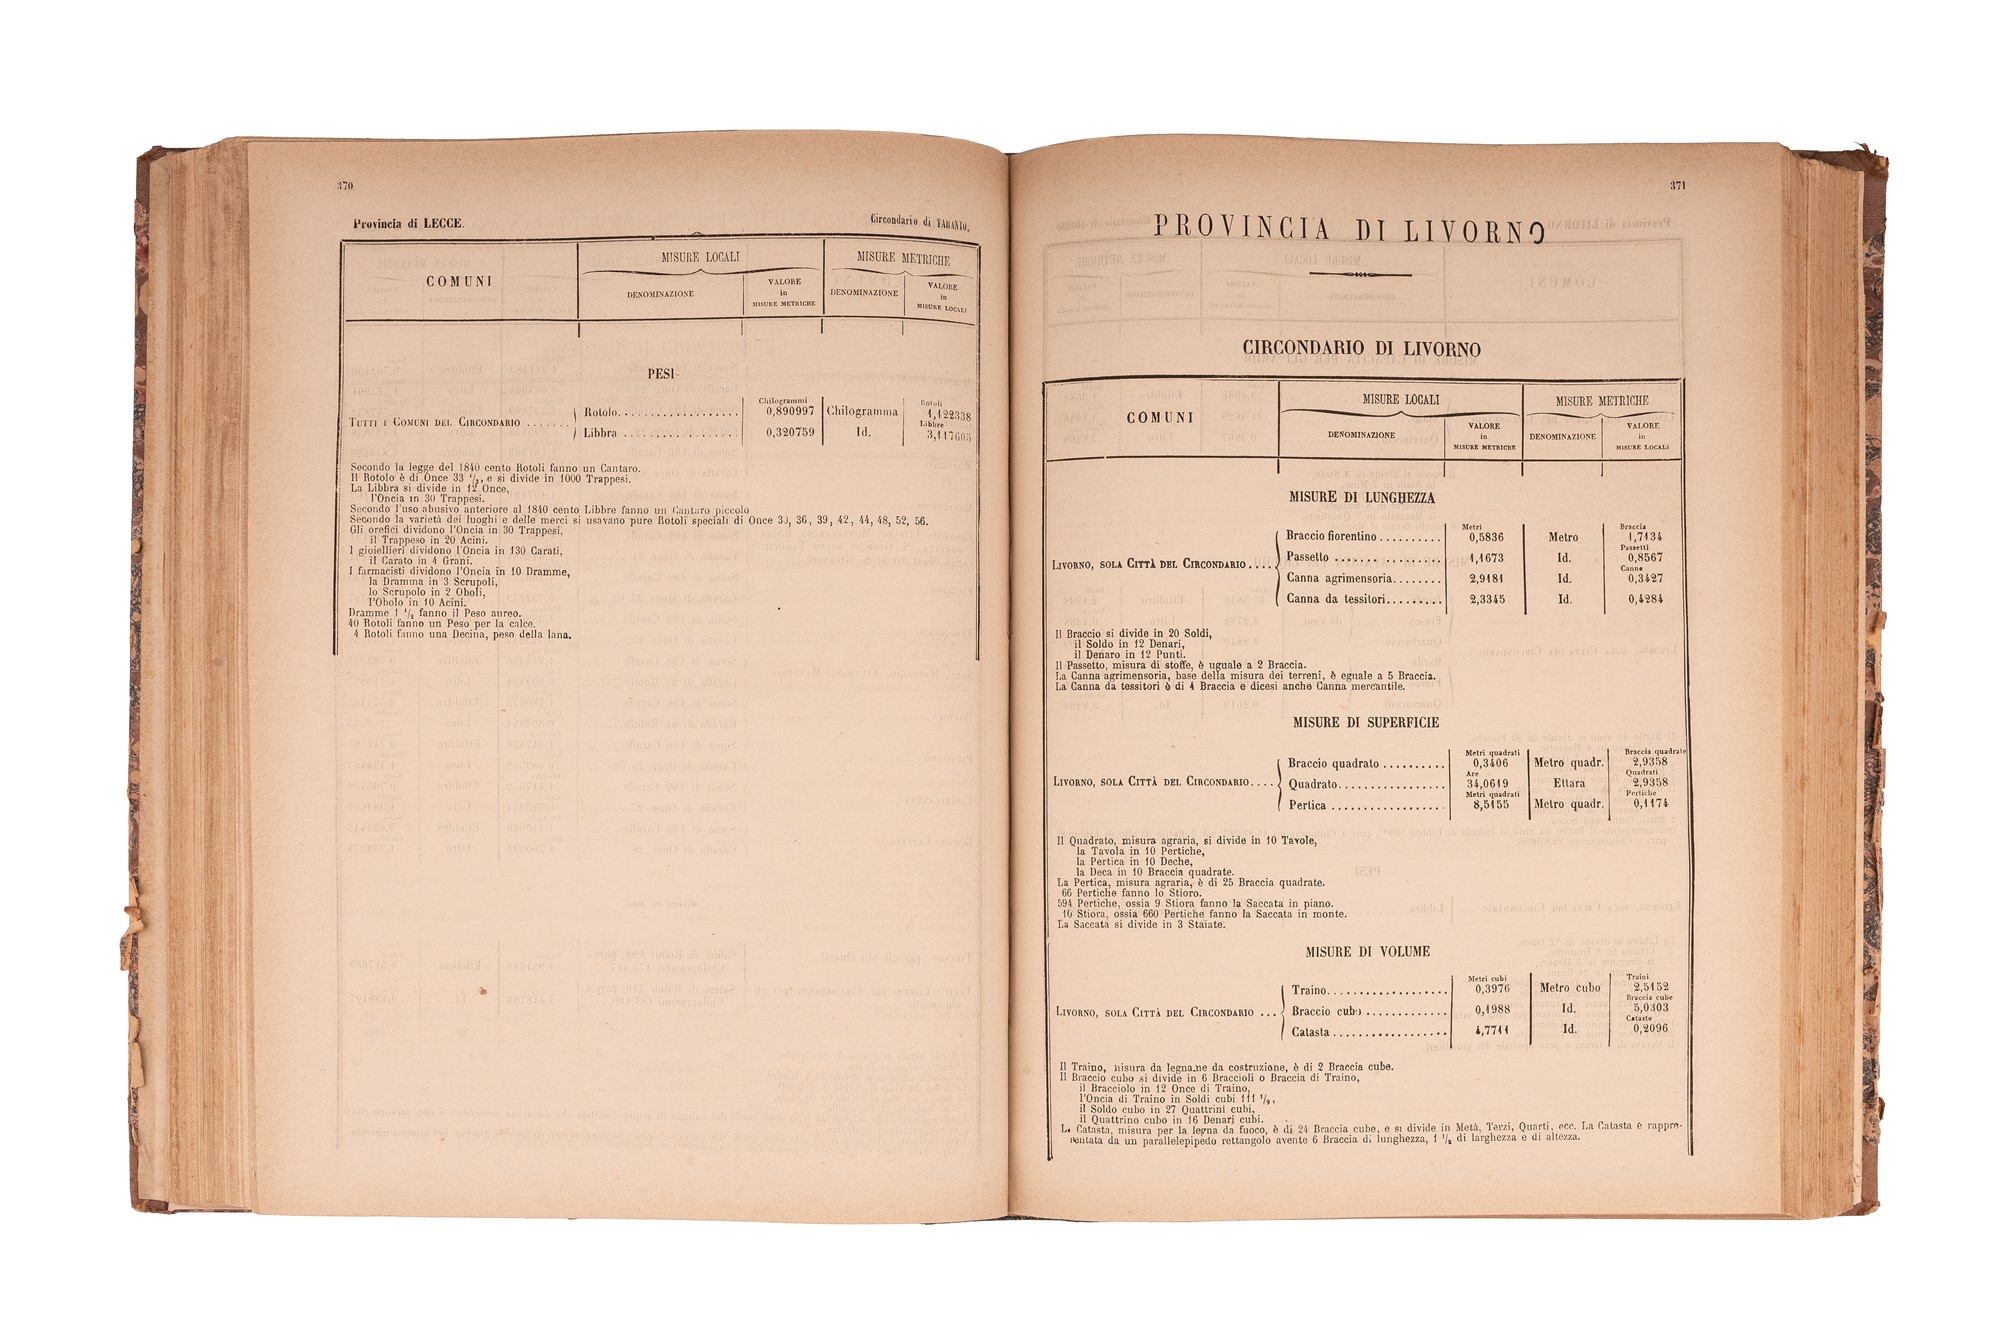 370
Provincia di LECCE. Circondario di TARANTO.
COMUNI MISURE LOCALI MISURE METRICHE
DENOMINAZIONE VALORE in MISURE METRICHE DENOMINAZIONE VALORE in MISURE LOCALI
PESI
Chilogrammi Rotoli
Rotolo. . . . . . . . . . . . . . . . . . . 0,890997 Chilogramma 1,122338
TUTTI I COMUNI DEL CIRCONDARIO . . . . . . .
Libbre
Libbra . . . . . . . . . . . . . . . . . . 0,320759 Id. 3,117605
Secondo la legge del 1840 cento Rotoli fanno un Cantaro.
Il Rotolo è di Once 33 1/3, e si divide in 1000 Trappesi.
La Libbra si divide in 12 Once,
l'Oncia in 30 Trappesi.
Secondo l'uso abusivo anteriore al 1840 cento Libbre fanno un Cantaro piccolo
Secondo la varietà dei luoghi e delle merci si usavano pure Rotoli speciali di Once 30, 36, 39, 42, 44, 48, 52, 56.
Gli orefici dividono l'Oncia in 30 Trappesi,
il Trappeso in 20 Acini.
I gioiellieri dividono l'Oncia in 130 Carati,
il Carato in 4 Grani.
I farmacisti dividono l'Oncia in 10 Dramme,
la Dramma in 3 Scrupoli,
lo Scrupolo in 2 Oboli,
l'Obolo in 10 Acini.
Dramme 1 1/2 fanno il Peso aureo.
40 Rotoli fanno un Peso per la calce.
4 Rotoli fanno una Decina, peso della lana.
371
PROVINCIA DI LIVORNO
CIRCONDARIO DI LIVORNO
COMUNI MISURE LOCALI MISURE METRICHE
DENOMINAZIONE VALORE in MISURE METRICHE DENOMINAZIONE VALORE in MISURE LOCALI
MISURE DI LUNGHEZZA
Metri Braccia
Braccio fiorentino . . . . . . . . . . 0,5836 Metro 1,7134
Passetti
Passetto . . . . . . . . . . . . . . . . . 1,1673 Id. 0,8567
LIVORNO, SOLA CITTÀ DEL CIRCONDARIO . . . .
Canne
Canna agrimensoria. . . . . . . . 2,9181 Id. 0,3427
Canna da tessitori. . . . . . . . . 2,3345 Id. 0,4284
Il Braccio si divide in 20 Soldi,
il Soldo in 12 Denari,
il Denaro in 12 Punti.
Il Passetto, misura di stoffe, è uguale a 2 Braccia.
La Canna agrimensoria, base della misura dei terreni, è eguale a 5 Braccia.
La Canna da tessitori è di 4 Braccia e dicesi anche Canna mercantile.
MISURE DI SUPERFICIE
Metri quadrati Braccia quadrate
Braccio quadrato . . . . . . . . . . 0,3406 Metro quadr. 2,9358
Are Quadrati
LIVORNO, SOLA CITTÀ DEL CIRCONDARIO. . . . Quadrato. . . . . . . . . . . . . . . . . 34,0619 Ettara 2,9358
Metri quadrati Pertiche
Pertica . . . . . . . . . . . . . . . . . . 8,5155 Metro quadr. 0,1174
Il Quadrato, misura agraria, si divide in 10 Tavole,
la Tavola in 10 Pertiche,
la Pertica in 10 Deche,
la Deca in 10 Braccia quadrate.
La Pertica, misura agraria, è di 25 Braccia quadrate.
66 Pertiche fanno lo Stioro.
594 Pertiche, ossia 9 Stiora fanno la Saccata in piano.
10 Stiora, ossia 660 Pertiche fanno la Saccata in monte.
La Saccata si divide in 3 Staiate.
MISURE DI VOLUME
Metri cubi Traini
Traino. . . . . . . . . . . . . . . . . . . 0,3976 Metro cubo 2,5152
Braccia cube
LIVORNO, SOLA CITTÀ DEL CIRCONDARIO . . . Braccio cubo . . . . . . . . . . . . . 0,1988 Id. 5,0303
Cataste
Catasta . . . . . . . . . . . . . . . . . . 4,7711 Id. 0,2096
Il Traino, misura da legname da costruzione, è di 2 Braccia cube.
Il Braccio cubo si divide in 6 Braccioli o Braccia di Traino,
il Bracciolo in 12 Once di Traino,
l'Oncia di Traino in Soldi cubi 111 1/9,
il Soldo cubo in 27 Quattrini cubi,
il Quattrino cubo in 16 Denari cubi.
La Catasta, misura per la legna da fuoco, è di 24 Braccia cube, e si divide in Metà, Terzi, Quarti, ecc. La Catasta è rappre-
sentata da un parallelepipedo rettangolo avente 6 Braccia di lunghezza, 1 1/2 di larghezza e di altezza.